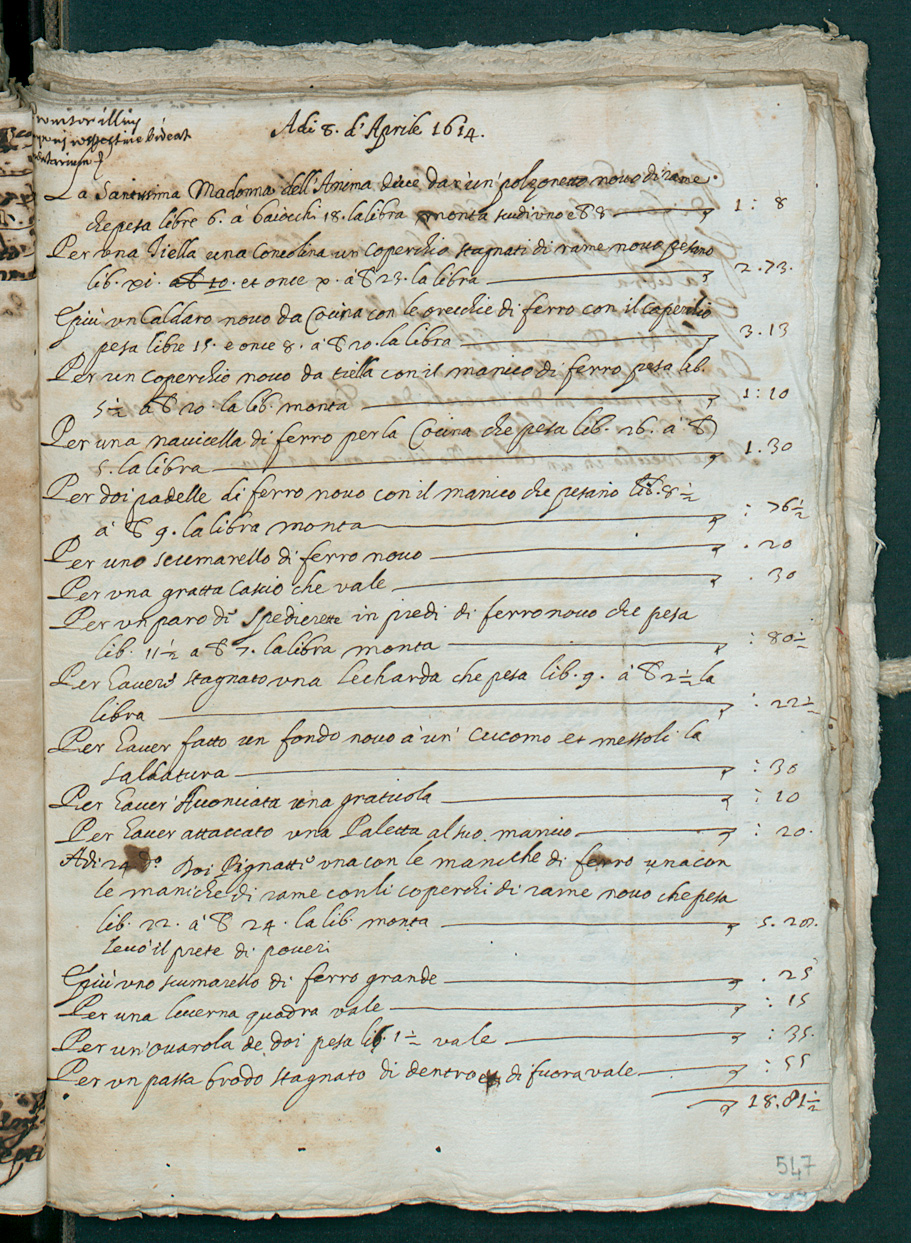 Adi 8. d'Aprile 1614.
La Santissima Madonna dell'Anima deve dar' un' polzonetto novo di rame
che pesa libre 6. a baiocchi 18. la libra monta scudi uno e ȣ 8 1 : 8
Per una Tiella una Concolina un Coperchio stagnati di rame novo pesano
lib. xi. et once x. a ȣ 23. la libra 2.73.
E più un Caldaro novo da Cocina con le orecchie di ferro con il coperchio
pesa libre 15. e once 8. a ȣ 20. la libra 3.13
Per un coperchio novo da tiella con il manico di ferro pesa lib.
5½ a ȣ 20. la lib. monta 1:10
Per una navicella di ferro per la Cocina che pesa lib. 26. a ȣ
5. la libra 1.30
Per doi padelle di ferro novo con il manico che pesano lib. 8½
a ȣ 9. la libra monta : 76½
Per uno scumarello di ferro novo . 20
Per una gratta Cascio che vale . 30
Per un paro di Spedierette in piedi di ferro novo che pesa
lib. 11½ a ȣ 7. la libra monta : 80½
Per haver' stagnato una lecharda che pesa lib. 9. a ȣ 2½ la
libra : 22½
Per haver fatto un fondo novo a un' cucomo et messoli la
saldatura : 30
Per haver' Acconciata una grativola : 10
Per haver attaccato una Paletta al suo manico : 20.
Adi 24 do. Doi Pignatti una con le maniche di ferro una con
le maniche di rame con li coperchi di rame novo che pesa
lib. 22. a ȣ 24. la lib. monta 5. 20.
levò il prete di poveri
E più uno scumarello di ferro grande . 25
Per una lucerna quadra vale : 15
Per un' ovarola de doi pesa lib. 1½ vale : 35.
Per un passa brodo stagnato di dentro et di fuora vale : 55
18.81½
547